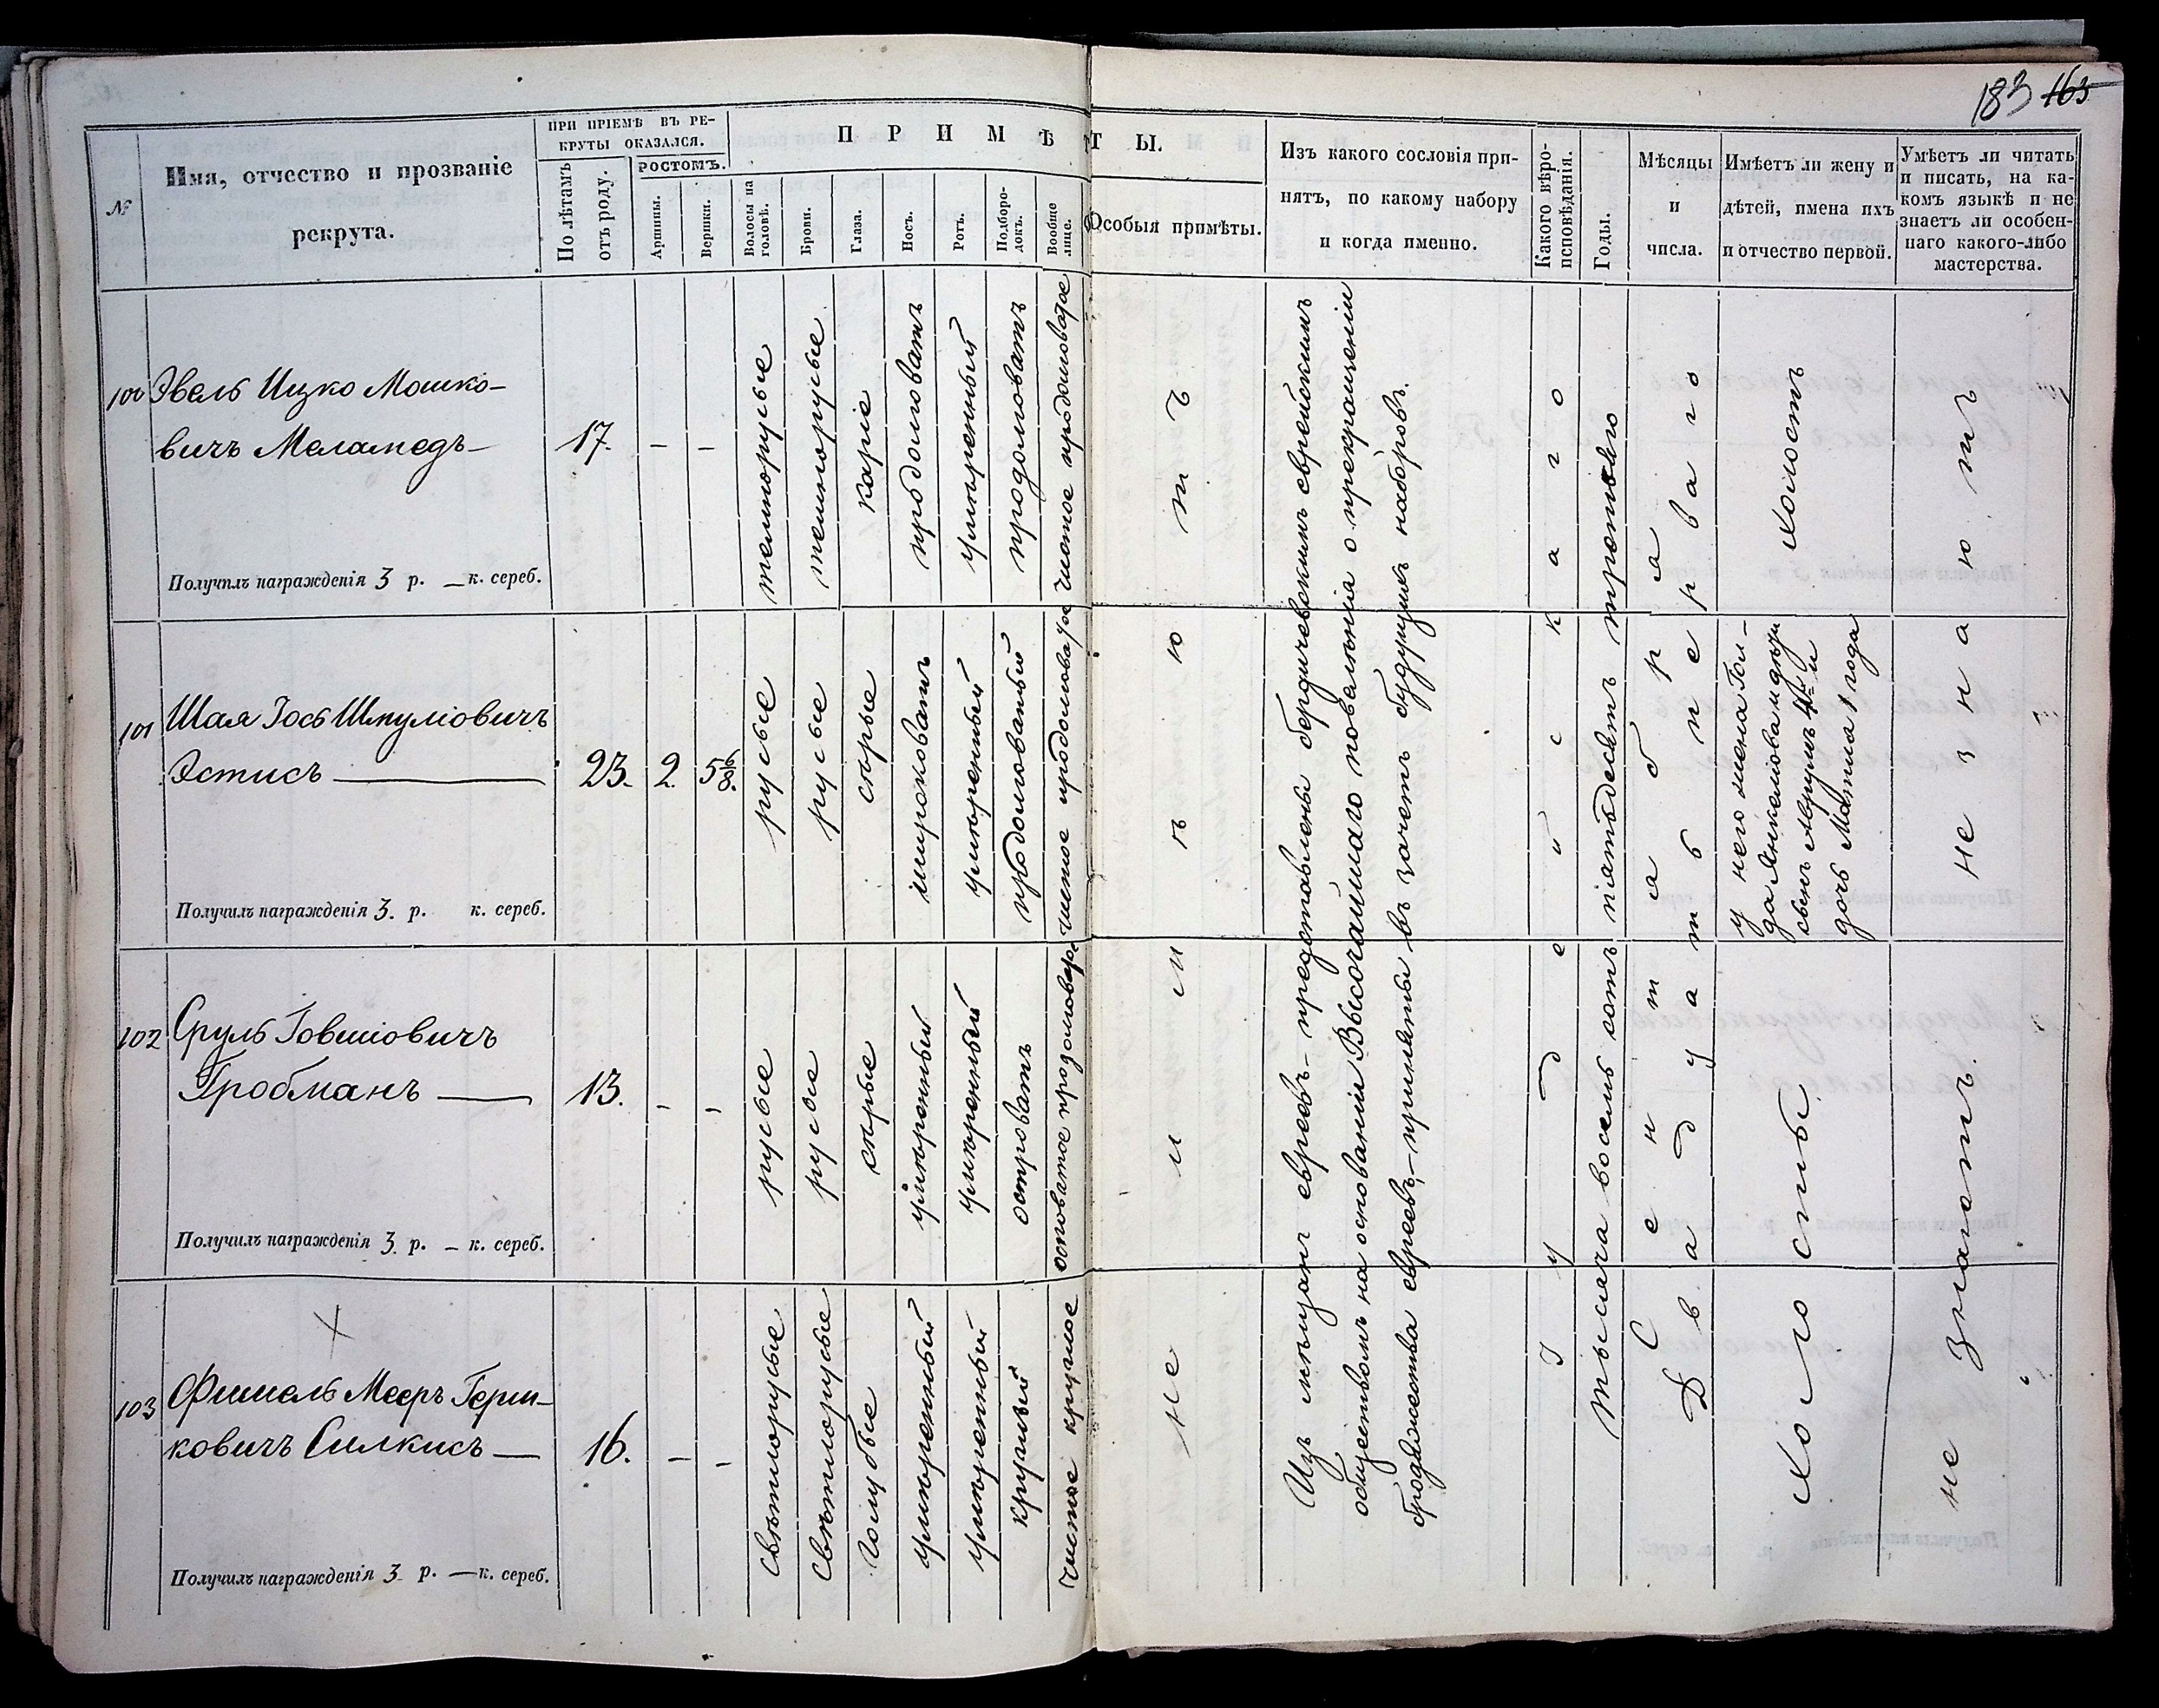 183 163
№
Имя, отчество и прозваніе
рекрута.
ПРИ ПРІЕМѢ ВЪ РЕ-
КРУТЫ ОКАЗАЛСЯ.
По лѣтамъ
отъ роду.
РОСТОМЪ.
Аршины.
Вершки.
ПРИМѢТЫ.
Волосы на
головѣ.
Брови.
Глаза.
Носъ.
Ротъ.
Подборо-
докъ.
Вообще
лице.
Особыя примѣты.
Изъ какого сословія при-
нятъ, по какому набору
и когда именно.
Какого вѣро-
исповѣданія.
Годы.
Мѣсяцы
и
числа.
Имѣетъ ли жену и
дѣтей, имена ихъ
и отчество первой.
Умѣетъ ли читать
и писать, на ка-
комъ языкѣ и не
знаетъ ли особен-
наго какого-либо
мастерства.
100 Эвель Ицко Мошко-
вичъ Меламедъ—
17. – –
темнорусые
темнорусые
каріе
продолговатъ
умѣренный
продолговатъ
чистое продолговатое
холостъ
Получилъ награжденія 3 р. — к. сереб.
101 Шая Іось Шмуліовичъ
Эстисъ —
23. 2. 5 6/8.
русые
русые
сѣрые
широковатъ
умѣренный
продолговатый
чистое продолговатое
у него жена Гол-
да Янкеліова и дѣти
сынъ Аврумъ 4 и
дочь Матля 1 года
Получилъ награжденія 3. р. к. сереб.
102 Сруль Іовшіовичъ
Гробманъ —
13. – –
русые
русые
сѣрые
умѣренный
умѣренный
островатъ
осповатое продолговатое
Получилъ награжденія 3. р. – к. сереб.
103 Фишель Мееръ Герш-
ковичъ Силкисъ —
16. – –
свѣтлорусые
свѣтлорусые
голубые
умѣренный
умѣренный
круглый
чистое круглое
Получилъ награжденія 3 р. — к. сереб.
не имѣютъ
Изъ мѣщанъ евреевъ – представлены бердичевскимъ еврейскимъ
обществомъ на основаніи Высочайшаго повелѣнія о прекращеніи
бродяжества евреевъ, – приняты въ зачетъ будущихъ наборовъ.
Іудейскаго
Тысяча восемь сотъ пятьдесятъ третьяго
Сентября
Двадцать перваго
Холосты
не знаютъ.
не знаютъ